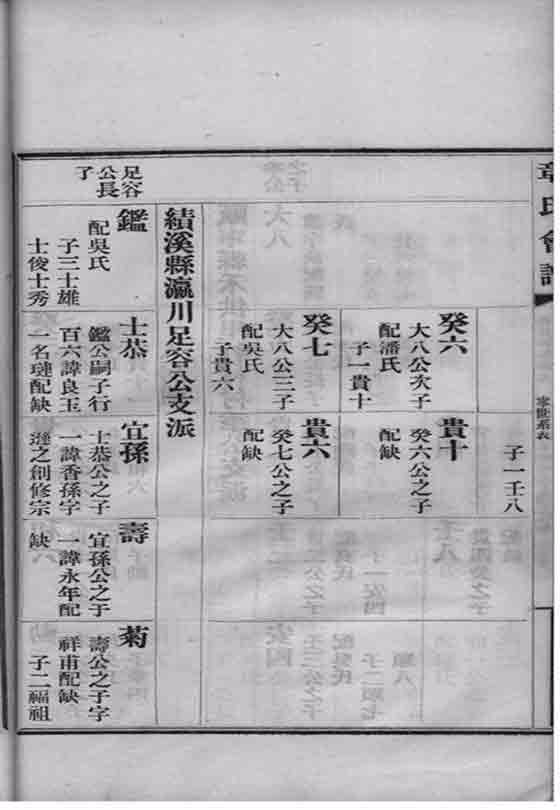 章氏會譜
子一壬八
癸六
大八公次子
配潘氏
子一貴十
貴十
癸六公之子
配缺
癸七
大八公三子
配吳氏
子貴六
貴六
癸七公之子
配缺
績溪縣瀛川足容公支派
足容
公長
子
鑑
配吳氏
子三士雄
士俊士秀
士恭
鑑公嗣子行
百六諱良玉
一名璉配缺
宜孫
士恭公之子
一諱香孫字
之創修宗
壽
宜孫公之子
一諱永年配
缺
菊
壽公之子字
祥甫配缺
子二福祖